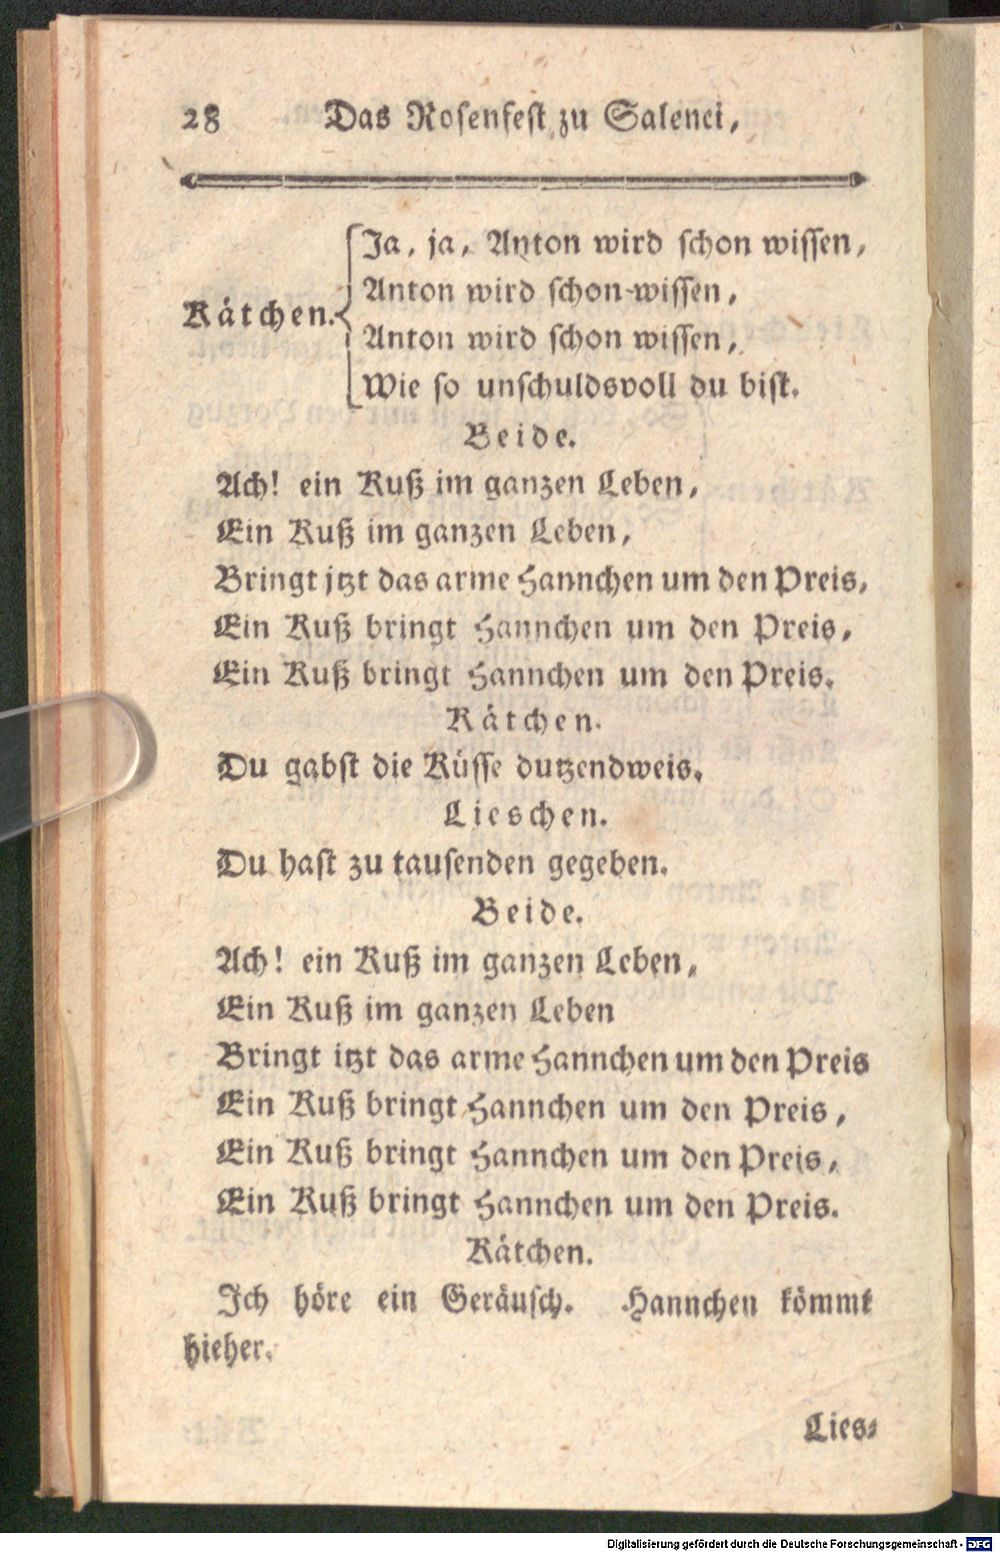 28 Das Rosenfest zu Salenci,
Ja, ja, Anton wird schon wissen,
Anton wird schon wissen,
Kätchen.
Anton wird schon wissen,
Wie so unschuldsvoll du bist.
Beide.
Ach! ein Kuß im ganzen Leben,
Ein Kuß im ganzen Leben,
Bringt jtzt das arme Hannchen um den Preis,
Ein Kuß bringt Hannchen um den Preis,
Ein Kuß bringt Hannchen um den Preis.
Kätchen.
Du gabst die Küsse dutzendweis.
Lieschen.
Du hast zu tausenden gegeben.
Beide.
Ach! ein Kuß im ganzen Leben,
Ein Kuß im ganzen Leben
Bringt itzt das arme Hannchen um den Preis
Ein Kuß bringt Hannchen um den Preis,
Ein Kuß bringt Hannchen um den Preis,
Ein Kuß bringt Hannchen um den Preis.
Kätchen.
Ich höre ein Geräusch. Hannchen kömmt
hieher.
Lies-
Digitalisierung gefördert durch die Deutsche Forschungsgemeinschaft - DFG